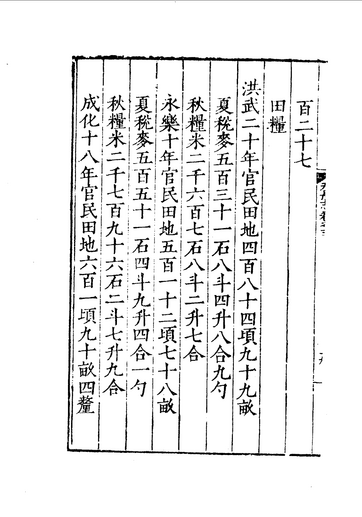 百二十七
田糧
洪武二十年官民田地四百八十四頃九十九畝
夏稅麥五百三十一石八斗四升八合九勺
秋糧米二千六百七石八斗二升七合
永樂十年官民田地五百一十二頃七十八畝
夏稅麥五百五十一石四斗九升四合一勺
秋糧米二千七百九十六石二斗七升九合
成化十八年官民田地六百一頃九十畝四釐